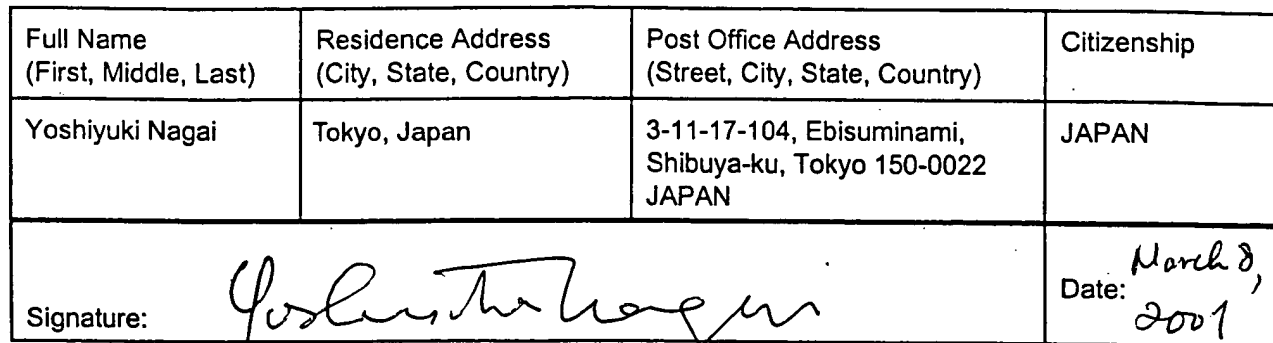 Full Name
(First, Middle, Last)
Residence Address
(City, State, Country)
Post Office Address
(Street, City, State, Country)
Citizenship
Yoshiyuki Nagai
Tokyo, Japan
3-11-17-104, Ebisuminami,
Shibuya-ku, Tokyo 150-0022
JAPAN
JAPAN
Signature:
Date: March 8,
2001